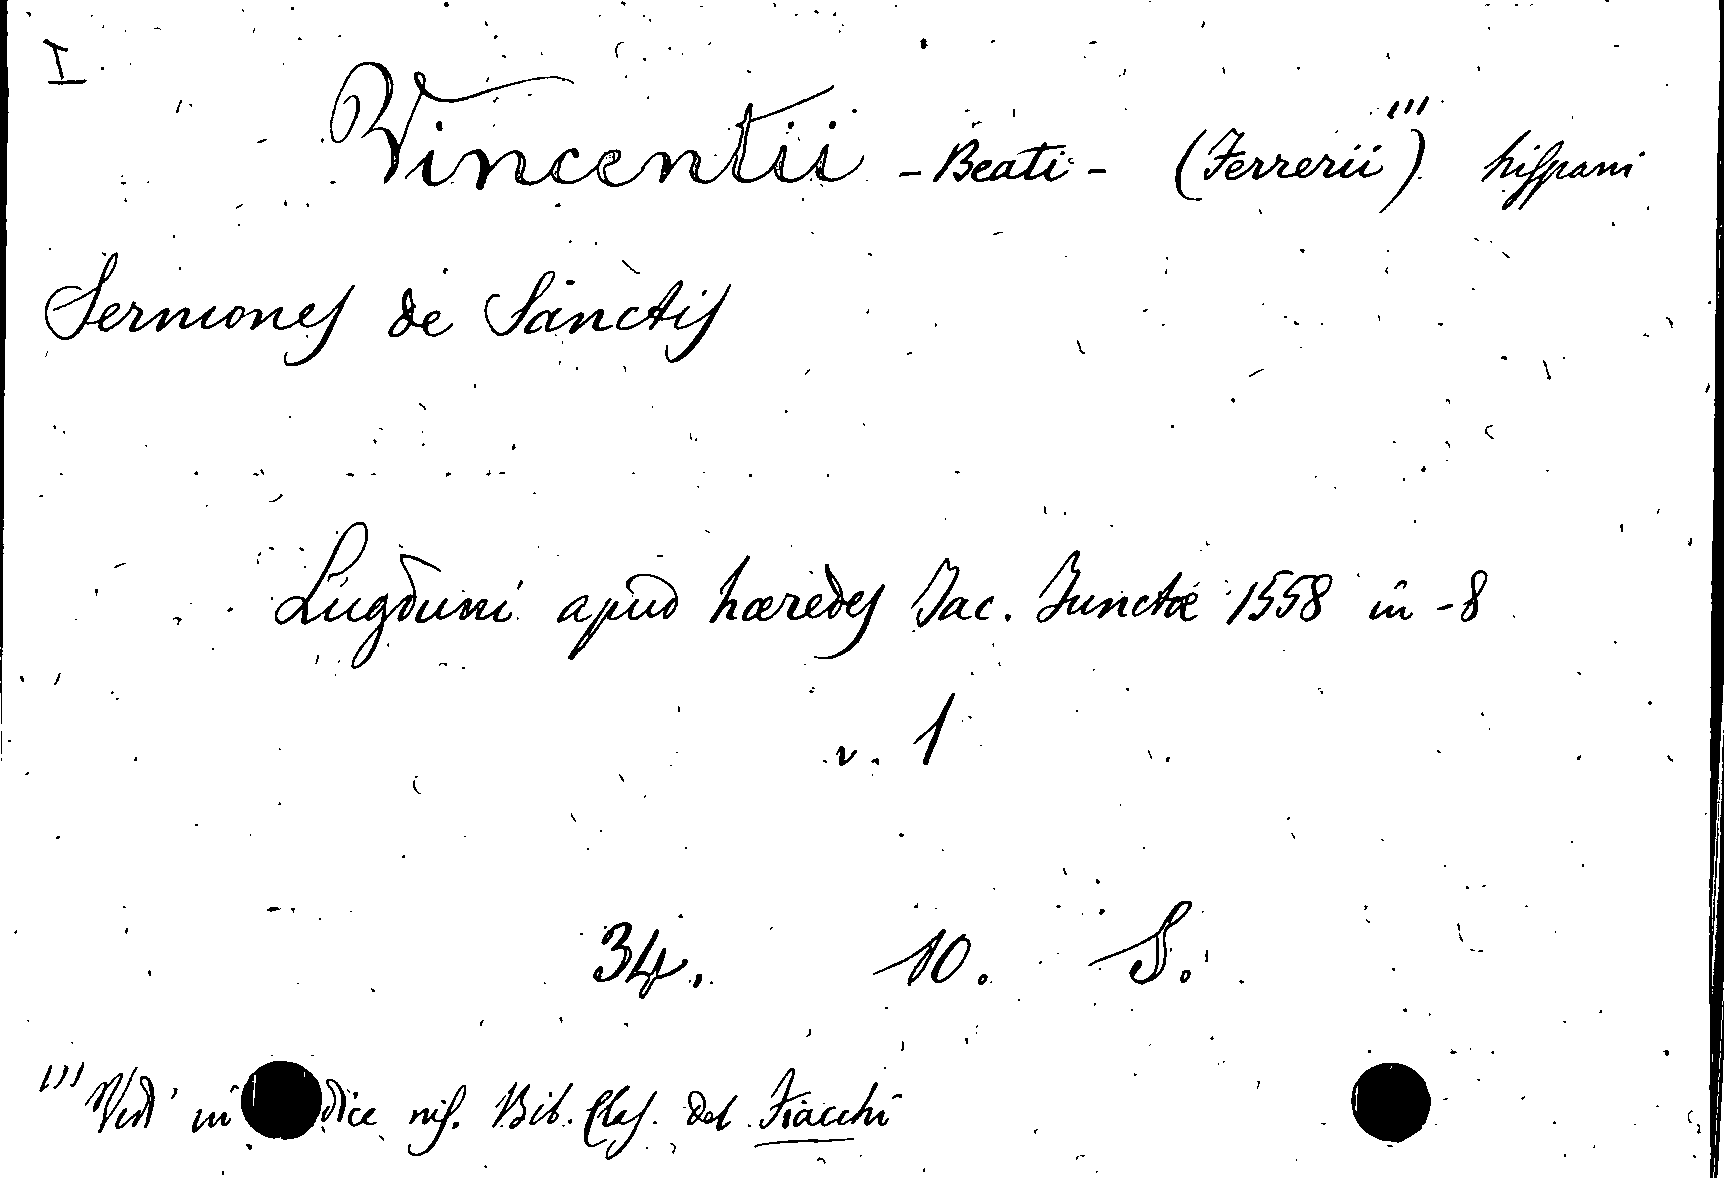 I
Vincentii - Beati - (Ferrerii''') hispani
Sermones de Sanctis
Lugduni apud hæredes Jac. Junctæ 1558 in -8
v. 1
34. 10. S.
''' Ved' in dice ms. Bib. Clas. del Fiacchi